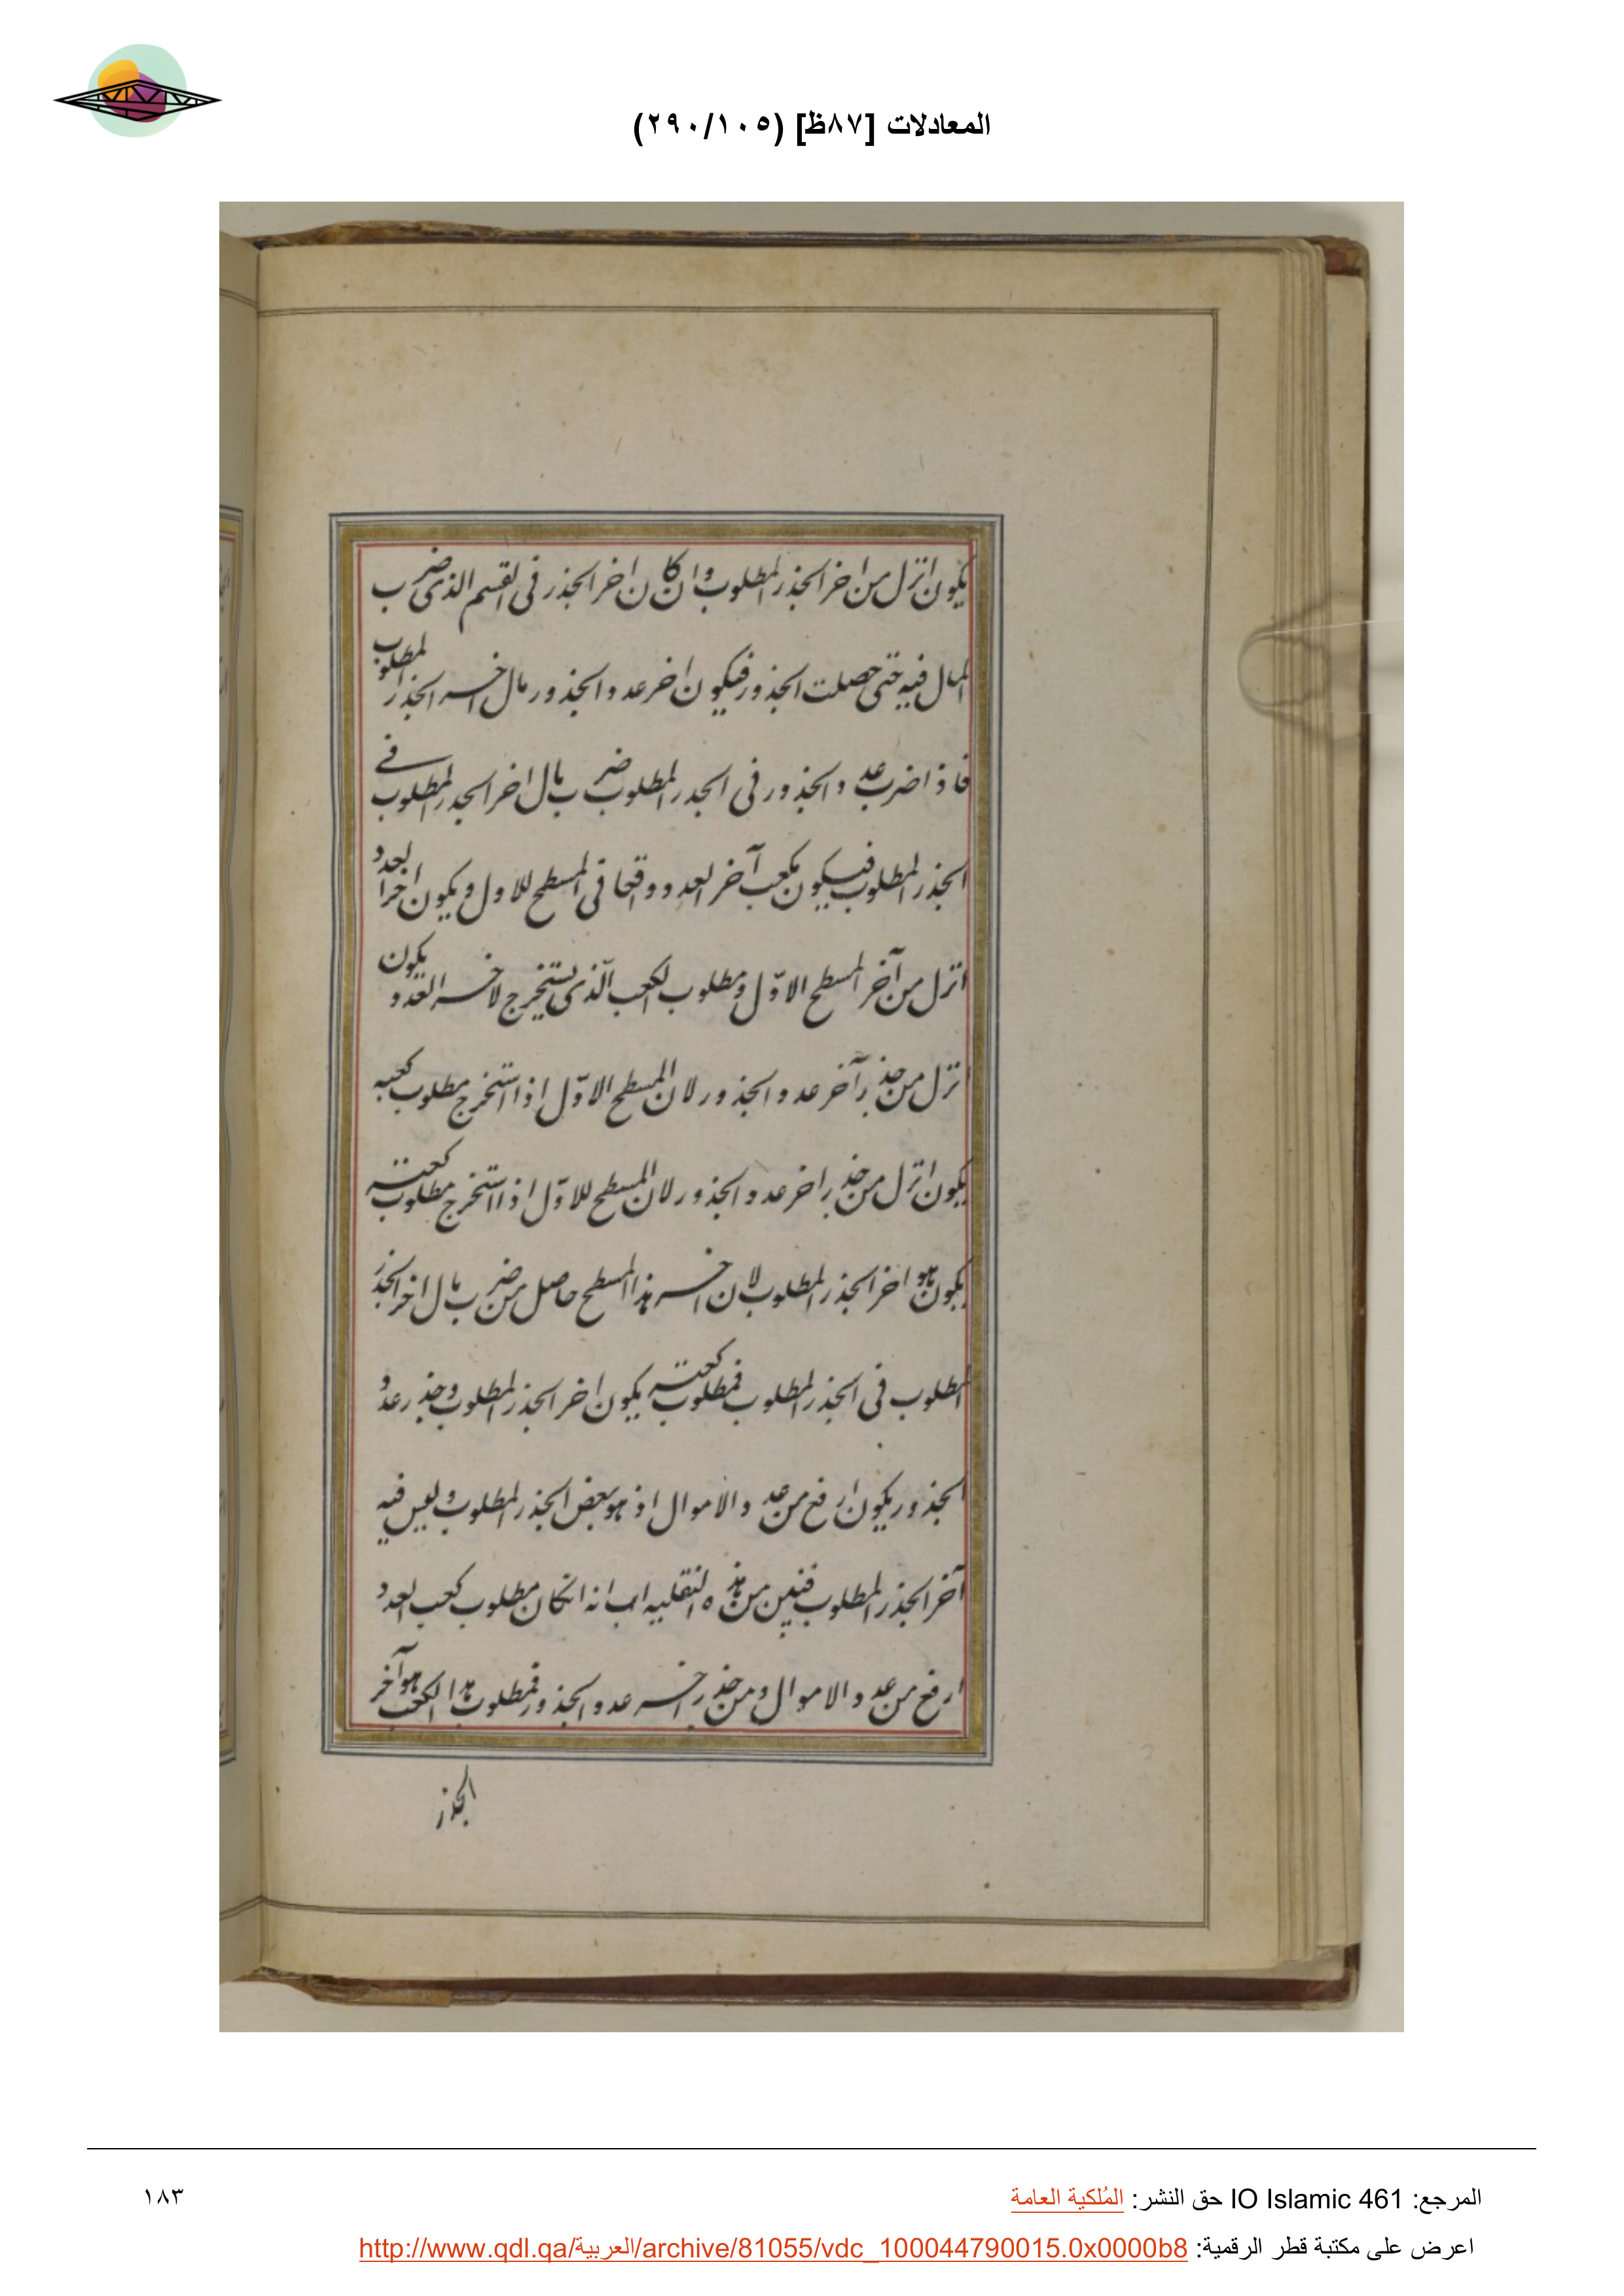 المعادلات [٨٧ظ] (٢٩٠/١٠٥)
يكون انزل من اخر الجذر المطلوب وان كان اخر الجذر فى القسم الذى ضرب
المال فيه حتى حصلت الجذور فيكون اخر عدد الجذور مال اخر الجذر المطلوب
فاذا ضرب عدد الجذور فى الجدر المطلوب ضرب مال اخر الجدر المطلوب فے
الجذر المطلوب فيكون مكعب آخر العدد واقعا فى المسطح للاول ويكون اخر العدد
انزل من آخر المسطح الاوّل ومطلوب الكعب الّذى يستخرج لاخر العدد يكون
انزل من جذر آخر عدد الجذور لان المسطح الاوّل اذا استخرج مطلوب كعبه
يكون انزل من جذر اخر عدد الجذور لان المسطح للاوّل اذا استخرج مطلوب كعبته
يكون هو اخر الجذر المطلوب لان اخر هذا المسطح حاصل من ضرب مال اخر الجذر
المطلوب فى الجذر المطلوب فمطلوب كعبته يكون اخر الجذر المطلوب وجذر عدد
الجذور يكون ارفع من عدد الاموال اذ هو بعض الجذر المطلوب وليس فيه
آخر الجذر المطلوب فتبين من هذه انه انكان مطلوب كعب العدد
ارفع من عدد الاموال ومن جذر اخر عدد الجذور فمطلوب هذا الكعب هو آخر
الجذر
المرجع: IO Islamic 461 حق النشر: المُلكية العامة
١٨٣
اعرض على مكتبة قطر الرقمية: http://www.qdl.qa/العربية/archive/81055/vdc_100044790015.0x0000b8